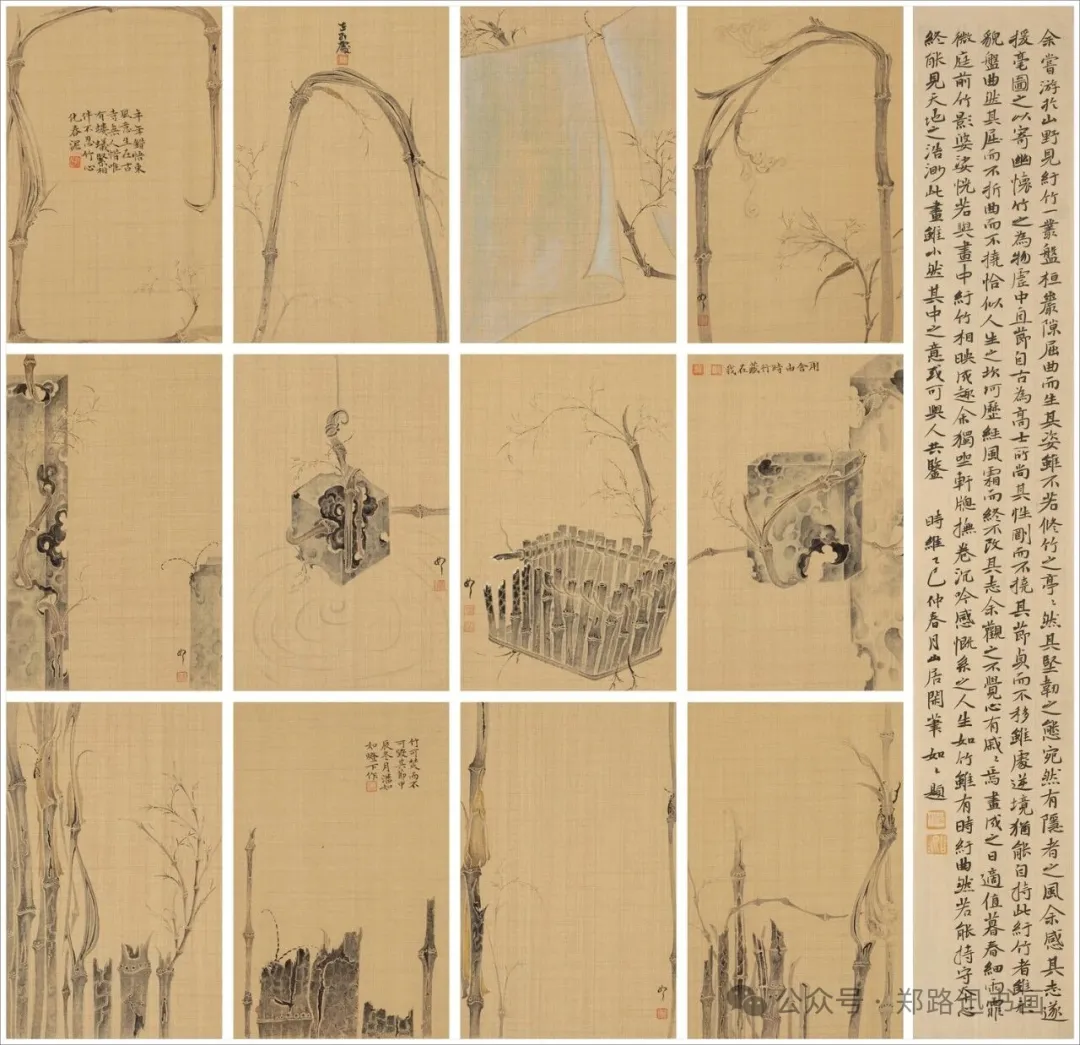 辛苦鑽悟東
風意生在古
寺無人惜唯
有螻蟻緊相
伴不忍竹心
化春泥
用舍由時行藏在我
竹可焚而不
可毀其節甲
辰冬月潘如
如燈下作
余嘗游於山野見紆竹一叢盤桓巖隙屈曲而生其姿雖不若修竹之亭〻然其堅韌之態宛然有隱者之風余感其志遂
援毫圖之以寄幽懷竹之為物虛中直節自古為高士所尚其性剛而不撓其節貞而不移雖處逆境猶能自持此紆竹者雖形
貌盤曲然其屈而不折曲而不撓恰似人生之坎坷歷經風霜而終不改其志余觀之不覺心有戚〻焉畫成之日適值暮春細雨霏
微庭前竹影婆娑恍若與畫中紆竹相映成趣余獨坐軒牕撫卷沉吟感慨系之人生如竹雖有時紆曲然若能持守本心
終能見天地之浩渺此畫雖小然其中之意或可與人共鑒 時維乙巳仲春月山居閑筆如〻題
公众号·郑路迅书画